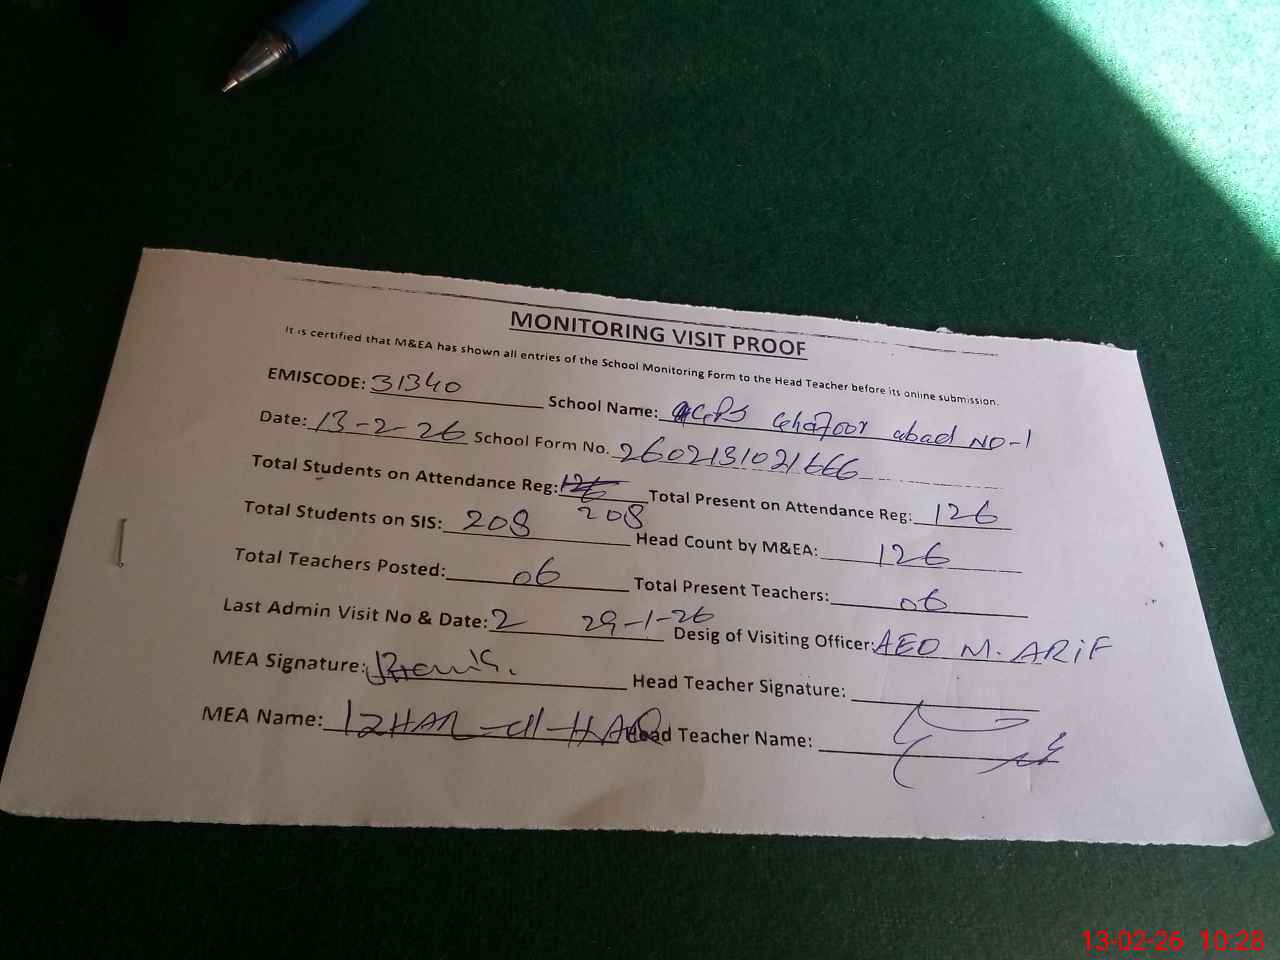 MONITORING VISIT PROOF
It is certified that M&EA has shown all entries of the School Monitoring Form to the Head Teacher before its online submission.
EMISCODE: 31340 School Name: GGPS Ghafoor abad NO-1
Date: 13-2-26 School Form No. 2602131021666
Total Students on Attendance Reg: 126 208 Total Present on Attendance Reg: 126
Total Students on SIS: 208 Head Count by M&EA: 126
Total Teachers Posted: 06 Total Present Teachers: 06
Last Admin Visit No & Date: 2 29-1-26 Desig of Visiting Officer: AEO M. ARiF
MEA Signature: Head Teacher Signature:
MEA Name: IZHAR-ul-HAQ Head Teacher Name:
13-02-26 10:28